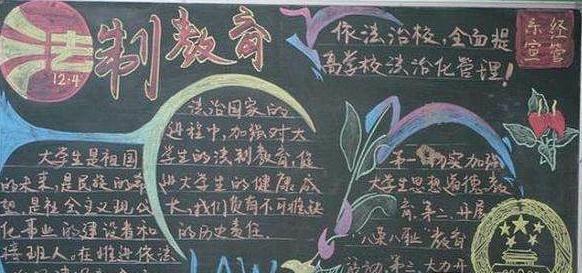 法制教育
12.4
依法治校,全面提
高学校法治化管理!
经管
系宣
法治国家的
进程中,加强对大
大学生是祖国
学生的法制教育,促
的未来,是民族的
进大学生的健康成
想是社会主义现代
长,我们负有不可推缺
化事业的建设者和
的历史责任
接班人,在推进依法
第一
实加强
大学生思想道德教
育,第二,开展
"八荣八耻"教育
活动,第三,大力开
LAW